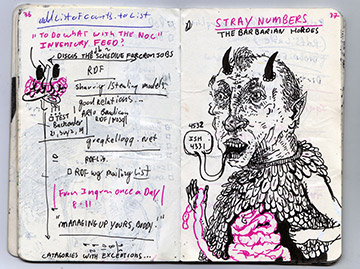 36
addListofcounts.toList
"TO DO WHAT WITH THE NOC
INVENTORY FEED?"
DISCUS THE SCHEDULE FOR CRON JOBS
RDF
Sharing/Stealing models
good relations...
TEST
gregkellogg.net
RDFLib.
RDF wg mailing List
From Ingram once a Day
8-11
"MANAGING UP YOURS, BUDDY."
CATAGORIES WITH EXCEPTIONS...
37
STRAY NUMBERS
THE BARBARIAN HORDES
4532
ISH
4331